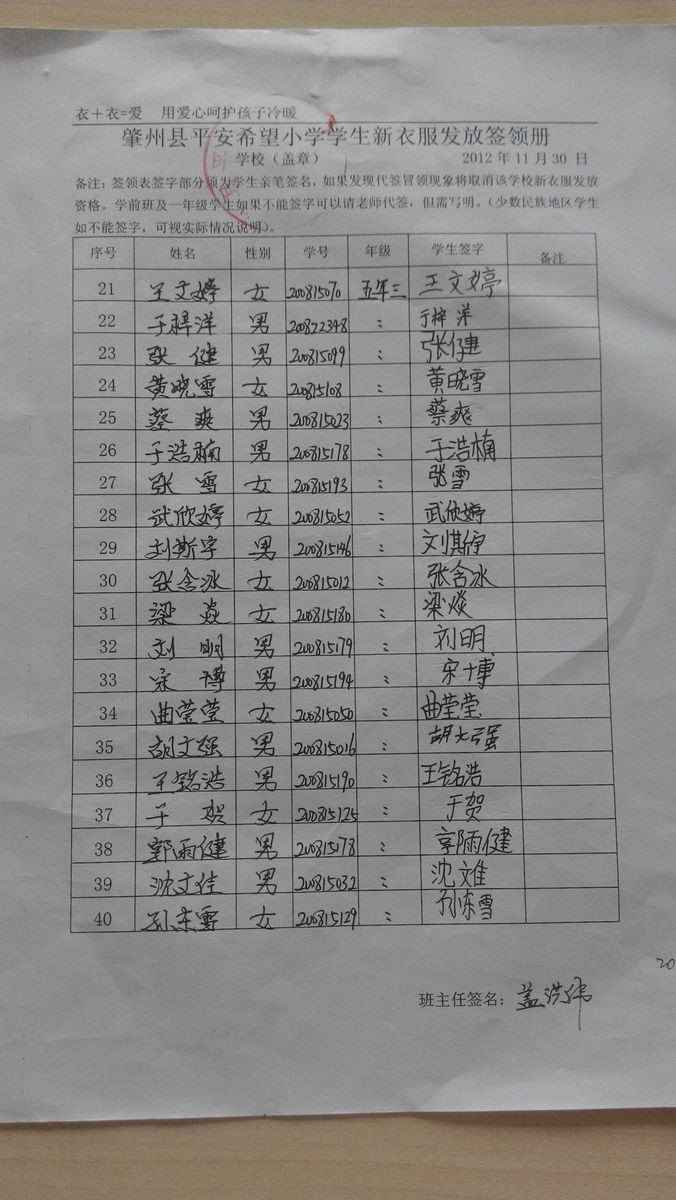 衣+衣=爱 用爱心呵护孩子冷暖
肇州县平安希望小学学生新衣服发放签领册
学校(盖章) 2012年11月30日
备注:签领表签字部分须为学生亲笔签名,如果发现代签冒领现象将取消该学校新衣服发放
资格。学前班及一年级学生如果不能签字可以请老师代签,但需写明。(少数民族地区学生
如不能签字,可视实际情况说明)。
序号 姓名 性别 学号 年级 学生签字 备注
21 王文婷 女 200815070 五年三 王文婷
22 于梓洋 男 200822348 : 于梓洋
23 张健 男 200815099 : 张健
24 黄晓雪 女 200815108 : 黄晓雪
25 蔡爽 男 200815023 : 蔡爽
26 于浩楠 男 200815178 : 于浩楠
27 张雪 女 200815193 : 张雪
28 武欣婷 女 200815052 : 武欣婷
29 刘斯宇 男 200815146 :
30 张含冰 女 200815012 : 张含冰
31 梁焱 女 200815180 : 梁焱
32 刘明 男 200815179 : 刘明
33 宋博 男 200815194 : 宋博
34 曲莹莹 女 200815050 : 曲莹莹
35 胡文强 男 200815016 : 胡文强
36 王铭浩 男 200815190 : 王铭浩
37 于贺 女 200815125 : 于贺
38 郭雨健 男 200815178 : 郭雨健
39 沈文佳 男 200815032 : 沈文佳
40 孙东雪 女 200815129 : 孙东雪
20
班主任签名:盖洪伟